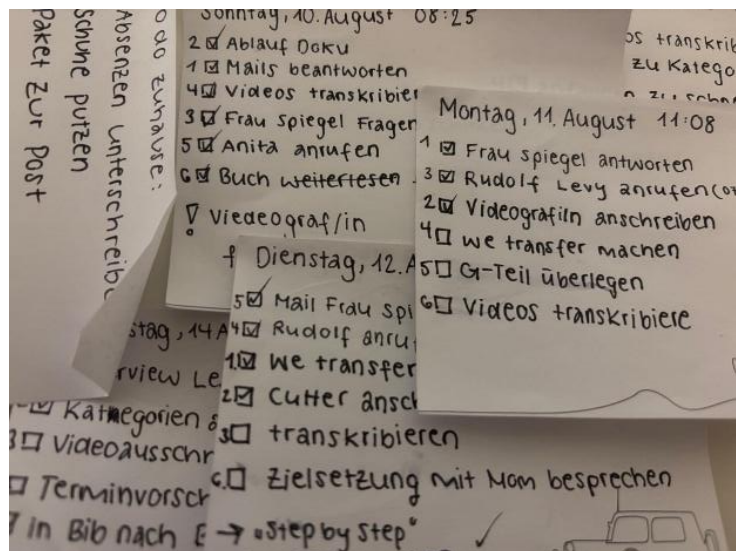 o do zuhause:
Absenzen unterschreibe
Schuhe putzen
Paket zur Post
Sonntag, 10. August 08:25
2 ☑ Ablauf Doku
1 ☑ Mails beantworten
4 ☑ Videos transkribier
3 ☑ Frau Spiegel Fragen
5 ☑ Anita anrufen
6 ☑ Buch weiterlesen
! Viedeograf/in
f
os transkrib
zu Katego
Montag, 11. August 11:08
1 ☑ Frau Spiegel antworten
3 ☑ Rudolf Levy anrufen (
2 ☑ VideografiIn anschreiben
4 ☐ we transfer machen
5 ☐ G-Teil überlegen
6 ☐ Videos transkribiere
Dienstag, 12. A
5 ☑ Mail Frau Spi
4 ☑ Rudolf anru
1. ☑ we transfer
2. ☑ Cutter ansch
3 ☐ transkribieren
6. ☐ Zielsetzung mit Mom besprechen
→ "Step by Step"
stag, 14 A
rview Le
☑ Kategorien
3 ☐ Videoausschr
☐ Terminvorsch
In Bib nach E